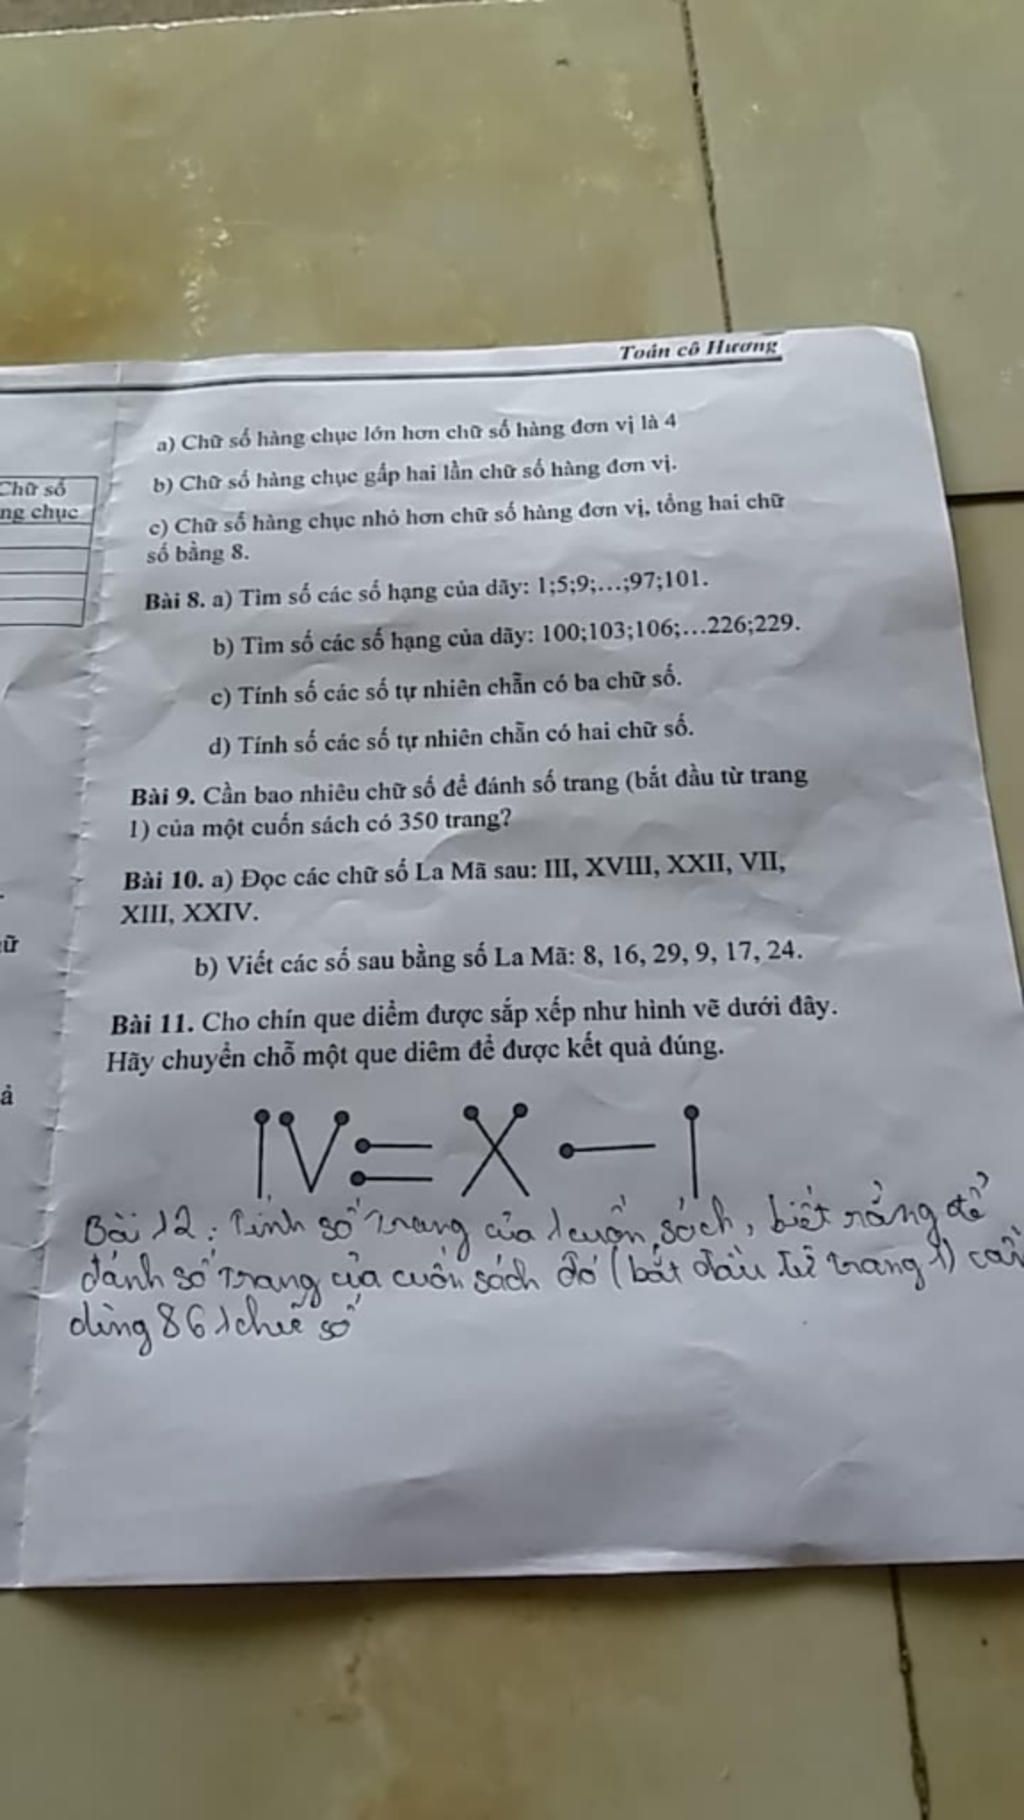 Toán cô Hương
a) Chữ số hàng chục lớn hơn chữ số hàng đơn vị là 4
b) Chữ số hàng chục gấp hai lần chữ số hàng đơn vị.
c) Chữ số hàng chục nhỏ hơn chữ số hàng đơn vị, tổng hai chữ
số bằng 8.
Chữ số
ng chục
Bài 8. a) Tìm số các số hạng của dãy: 1;5;9;…;97;101.
b) Tìm số các số hạng của dãy: 100;103;106;…226;229.
c) Tính số các số tự nhiên chẵn có ba chữ số.
d) Tính số các số tự nhiên chẵn có hai chữ số.
Bài 9. Cần bao nhiêu chữ số để đánh số trang (bắt đầu từ trang
1) của một cuốn sách có 350 trang?
Bài 10. a) Đọc các chữ số La Mã sau: III, XVIII, XXII, VII,
XIII, XXIV.
ữ
b) Viết các số sau bằng số La Mã: 8, 16, 29, 9, 17, 24.
Bài 11. Cho chín que diêm được sắp xếp như hình vẽ dưới đây.
Hãy chuyển chỗ một que diêm để được kết quả đúng.
ả
IV = X - I
Bài 12: Tính số trang của 1 cuốn sách, biết rằng để
đánh số trang của cuốn sách đó (bắt đầu từ trang 1) cần
dùng 861 chữ số